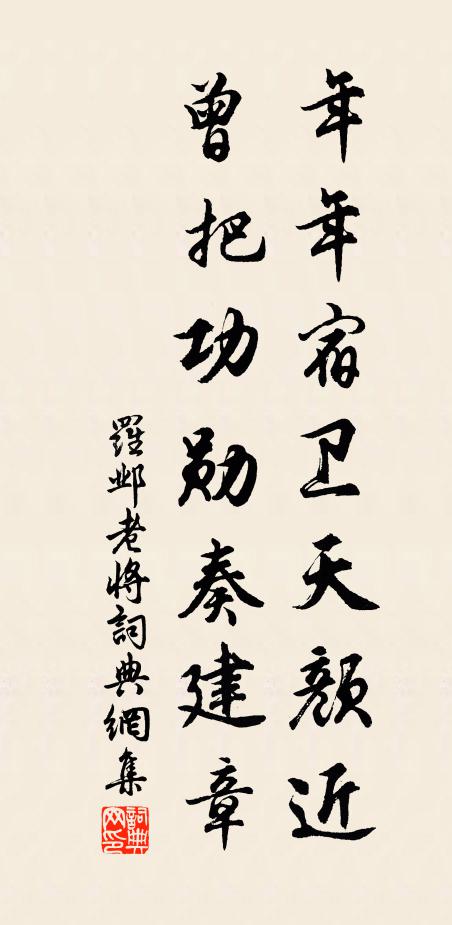 年年宿卫天颜近
曾把功勋奏建章
羅邺老將詞典網集
詞典网印